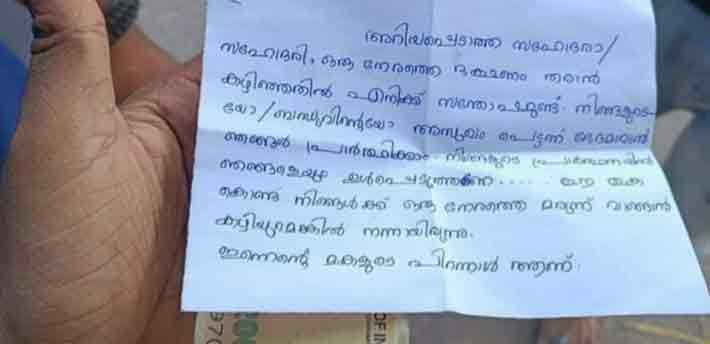 അറിയപ്പെടാത്ത സഹോദരാ/
സഹോദരി, ഒരു നേരത്തെ ഭക്ഷണം തരാൻ
കഴിഞ്ഞതിൽ എനിക്ക് സന്തോഷമുണ്ട്. നിങ്ങളുടെ
യോ/ബന്ധുവിന്റെയോ അസുഖം പെട്ടന്ന് ഭേദമാവാൻ
ഞങ്ങൾ പ്രാർത്ഥിക്കാം. നിങ്ങളുടെ പ്രാർത്ഥനയിൽ
ഞങ്ങളെയും ഉൾപെടുത്തണേ..... ഈ തുക
കൊണ്ട് നിങ്ങൾക്ക് ഒരു നേരത്തെ മരുന്ന് വാങ്ങാൻ
കഴിയുമെങ്കിൽ നന്നായിരുന്നു.
ഇന്നെന്റെ മകളുടെ പിറന്നാൾ ആണ്.
OF IN